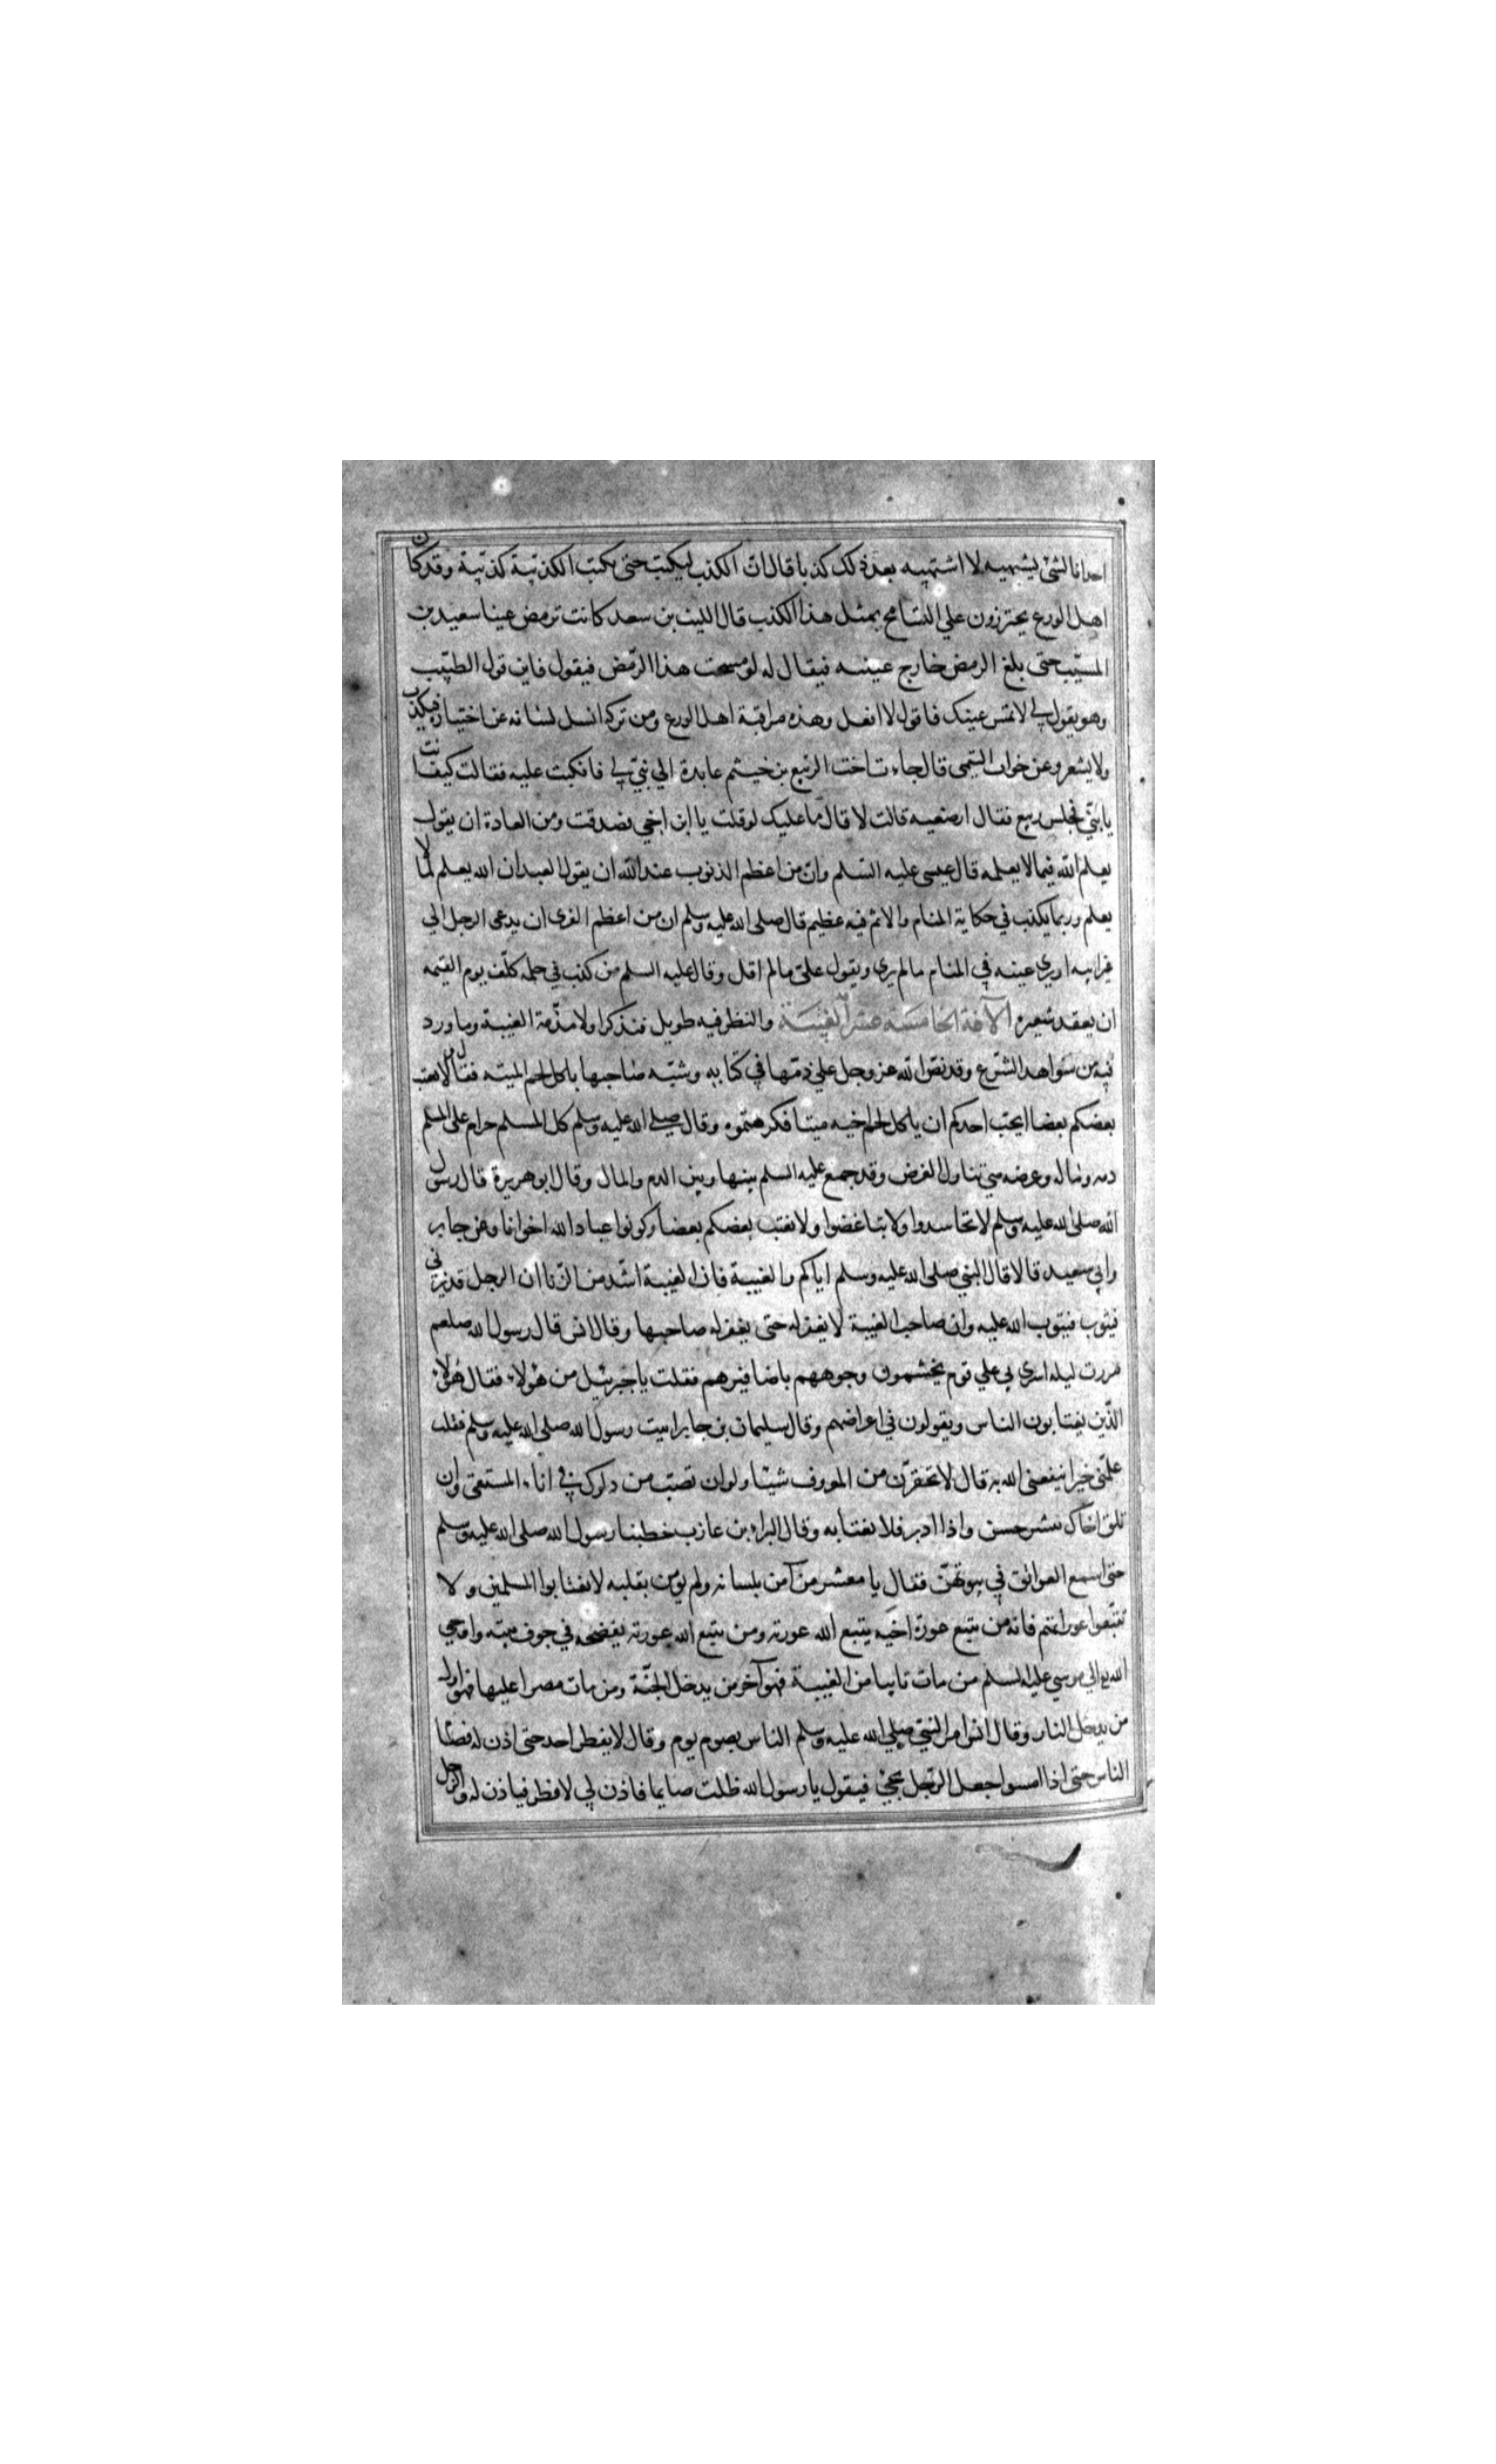 احدانا لشئ يشتهيه لا اشتهيه يعد ذلك كذبا قال ان الكذب ليكتب حتى يكتب الكذيبة كذيبة وقد كان
اهل الورع يحترزون علي التسامح بمثل هذا الكذب قال الليث بن سعد كانت ترمص عينا سعيد بن
المسيّب حتى بلغ الرمص خارج عينيه فيقال له لو مسحت هذا الرّمص فيقول فاين قول الطبيب
وهو يقول لي لا تمس عينك فاقول لا افعل وهذه مراقبة اهل الورع ومن تركه انسل لسانه عن اختياره فيكذب
ولا يشعر وعن خوات التيمى قال جاءت اخت الربيع بن خيثم عايدة الي بنيّ لي فانكبت عليه فقالت كيف انت
يا بنيّ فجلس ربيع فقال ارضعتيه قالت لا قال ما عليك لو قلت يا ابن اخي فصدقت ومن العادة ان يقول
يعلم الله فيما لا يعلمه قال عيسى عليه السّلم وان من اعظم الذنوب عند الله ان يقول العبد ان الله يعلم لما لا
يعلم وربما يكذب في حكاية المنام والاثم فيه عظيم قال صلى الله عليه وسلم ان من اعظم الفرى ان يدعى الرجل الي
غير ابيه او يري عينيه في المنام مالم يري ويقول علىّ مالم اقل وقال عليه السلم من كذب في حلمه كلّف يوم القيمه
ان يعقد شعيره الآفة الخامسة عشر الغيبة والنظر فيه طويل فنذكر اولا مذمّة الغيبة وما ورد
فيه من شواهد الشرع وقد نصّ الله عز وجل علي ذمّها في كتابه وشبّه صاحبها باكل لحم الميته فقال ولا يغتب
بعضكم بعضا ايحب احدكم ان ياكل لحم اخيه ميتا فكرهتموه وقال صلي الله عليه وسلم كل المسلم حرام على المسلم
دمه وماله وعرضه تناول العرض وقد جمع عليه السلم بينها وبين الدم والمال وقال ابو هريرة قال رسول
الله صلى الله عليه وسلم لا تحاسدوا ولا تباغضوا ولا يغتب بعضكم بعضا وكونوا عباد الله اخوانا وعن جابر
وابي سعيد قالا قال النبي صلى الله عليه وسلم اياكم والغيبة فان الغيبة اشد من الزنا ان الرجل قد يزني
فيتوب فيتوب الله عليه وان صاحب الغيبة لا يغفر له حتى يغفر له صاحبها وقال انس قال رسول الله صلعم
مررت ليله اسري بي علي قوم يخمشون وجوههم باضافيرهم فقلت يا جبرئيل من هؤلاء فقال هؤلاء
الذّين يغتابون الناس ويقولون في اعراضهم وقال سليمان بن جابر اتيت رسول الله صلى الله عليه وسلم فقلت
علّمني خيرا ينفعني الله به قال لا تحقرّن من المعروف شيئا ولو ان تصبّ من دلوك في اناء المستقى وان
تلقى اخاك ببشر حسن واذا ادبر فلا تغتابه وقال البراء بن عازب خطبنا رسول الله صلى الله عليه وسلم
حتى اسمع العواتق في بيوتهنّ فقال يا معشر من آمن بلسانه ولم يؤمن بقلبه لا تغتابوا المسلمين ولا
تتبّعوا عوراتهم فانه من يتبع عورة اخيه يتبع الله عورته ومن يتبع الله عورته يفضحه في جوف بيته واوحي
الله تعالي موسي عليه السلم من مات تايبا من الغيبة فهو آخر من يدخل الجنّة ومن مات مصرا عليها فهو اول
من يدخل النار وقال انس امر النبيّ صلي الله عليه وسلم الناس بصوم يوم وقال لا يفطر احد حتى اذن له فصام
الناس حتى اذا امسوا جعل الرّجل يجئ فيقول يا رسول الله ظللت صايما فاذن لي لافطر فياذن له والرجل